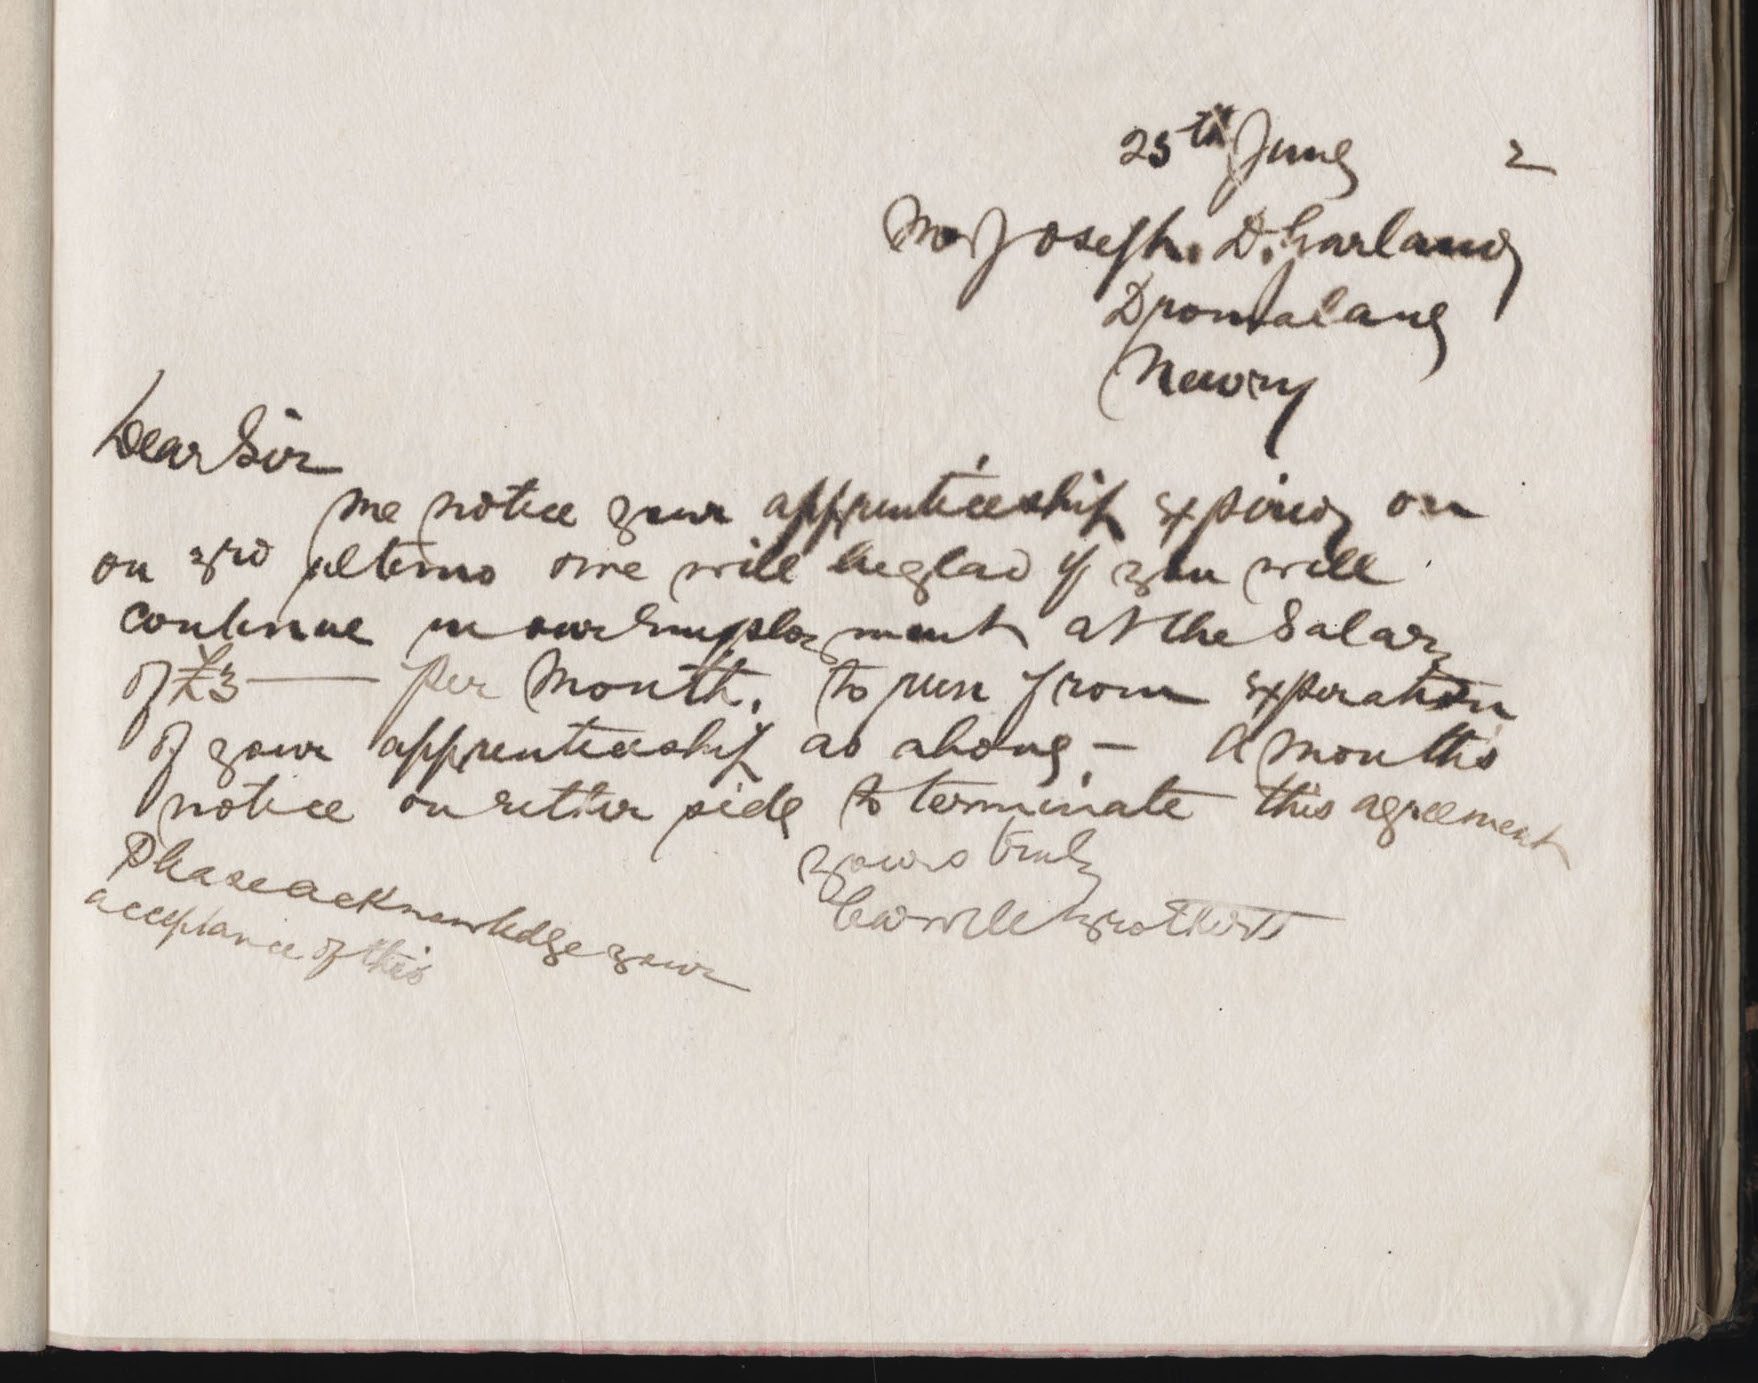 25th June 2
Mr Joseph. D. Garland
Dromalane
Newry
Dear Sir
We notice your apprenticeship expired on
on 3rd ultimo & we will be glad if you will
continue in our Employment at the Salary
of £3 — per Month. to run from expiration
of your apprenticeship as above — A months
notice on either side to terminate this agreement
Yours truly
Carville Brothers
Please acknowledge your
acceptance of this